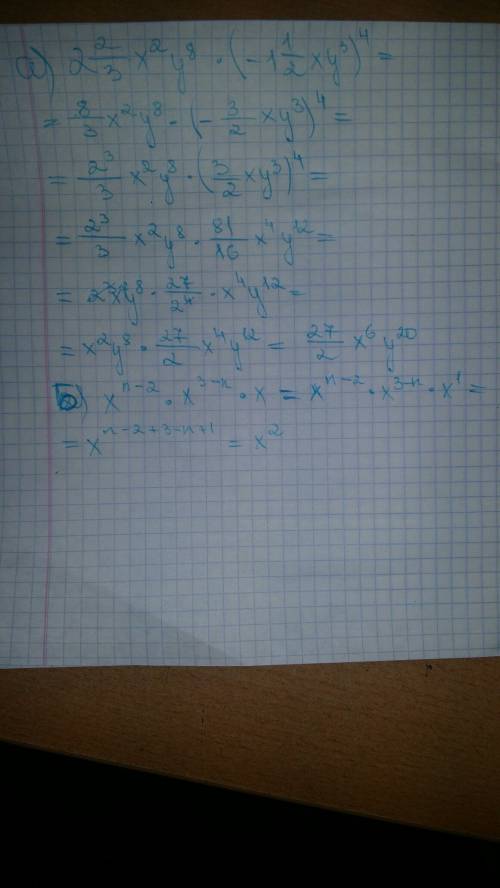 а) 2 2/3 x²y⁸ · (-1 1/2 xy³)⁴ =
= 8/3 x²y⁸ · (-3/2 xy³)⁴ =
= 2³/3 x²y⁸ · (3/2 xy³)⁴ =
= 2³/3 x²y⁸ · 81/16 x⁴y¹² =
= 2³x²y⁸ · 27/2⁴ · x⁴y¹² =
= x²y⁸ · 27/2 x⁴y¹² = 27/2 x⁶y²⁰
б) xⁿ⁻² · x³⁻ⁿ · x = xⁿ⁻² · x³⁻ⁿ · x¹ =
= xⁿ⁻²⁺³⁻ⁿ⁺¹ = x²